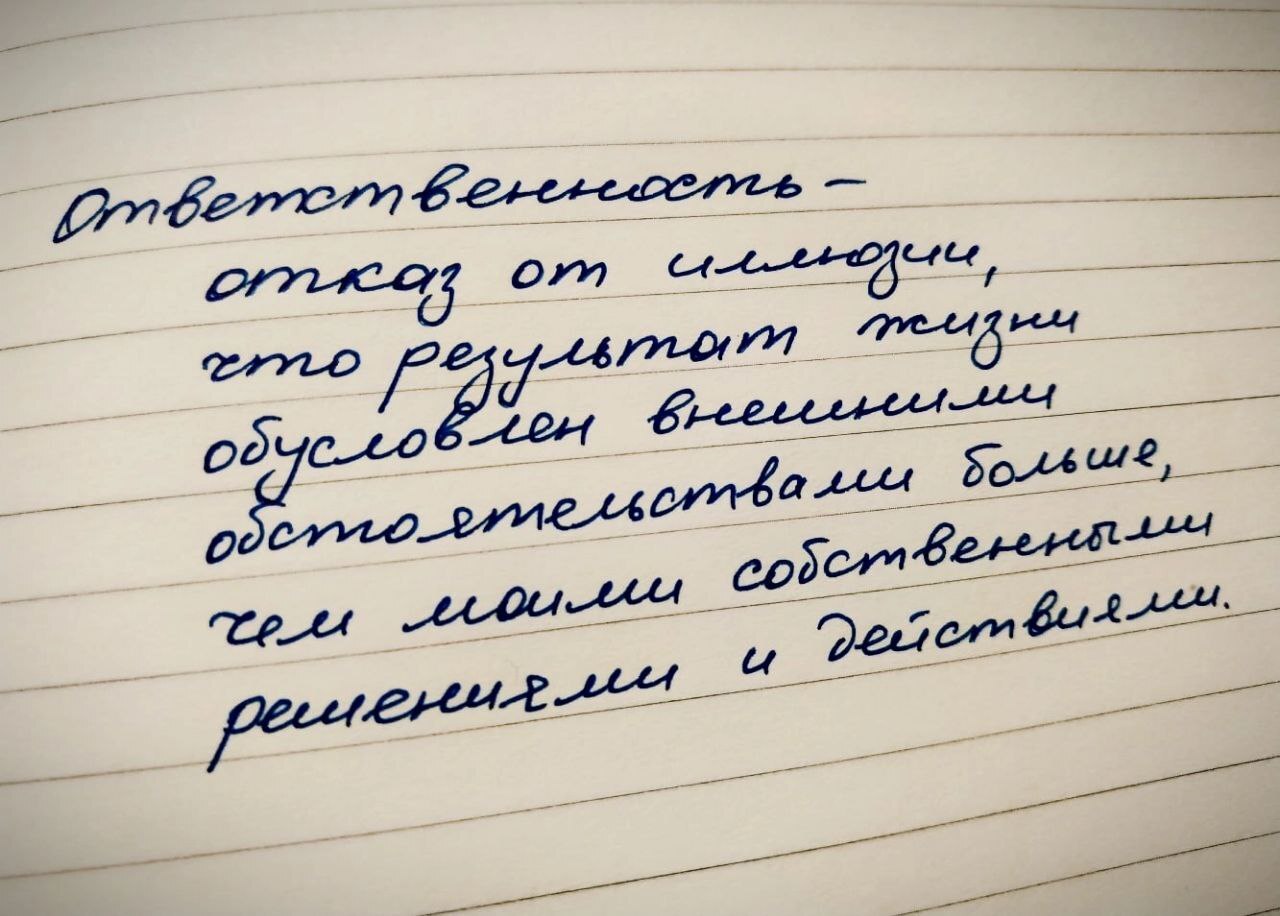 Ответственность –
отказ от иллюзии,
что результат жизни
обусловлен внешними
обстоятельствами больше,
чем моими собственными
решениями и действиями.